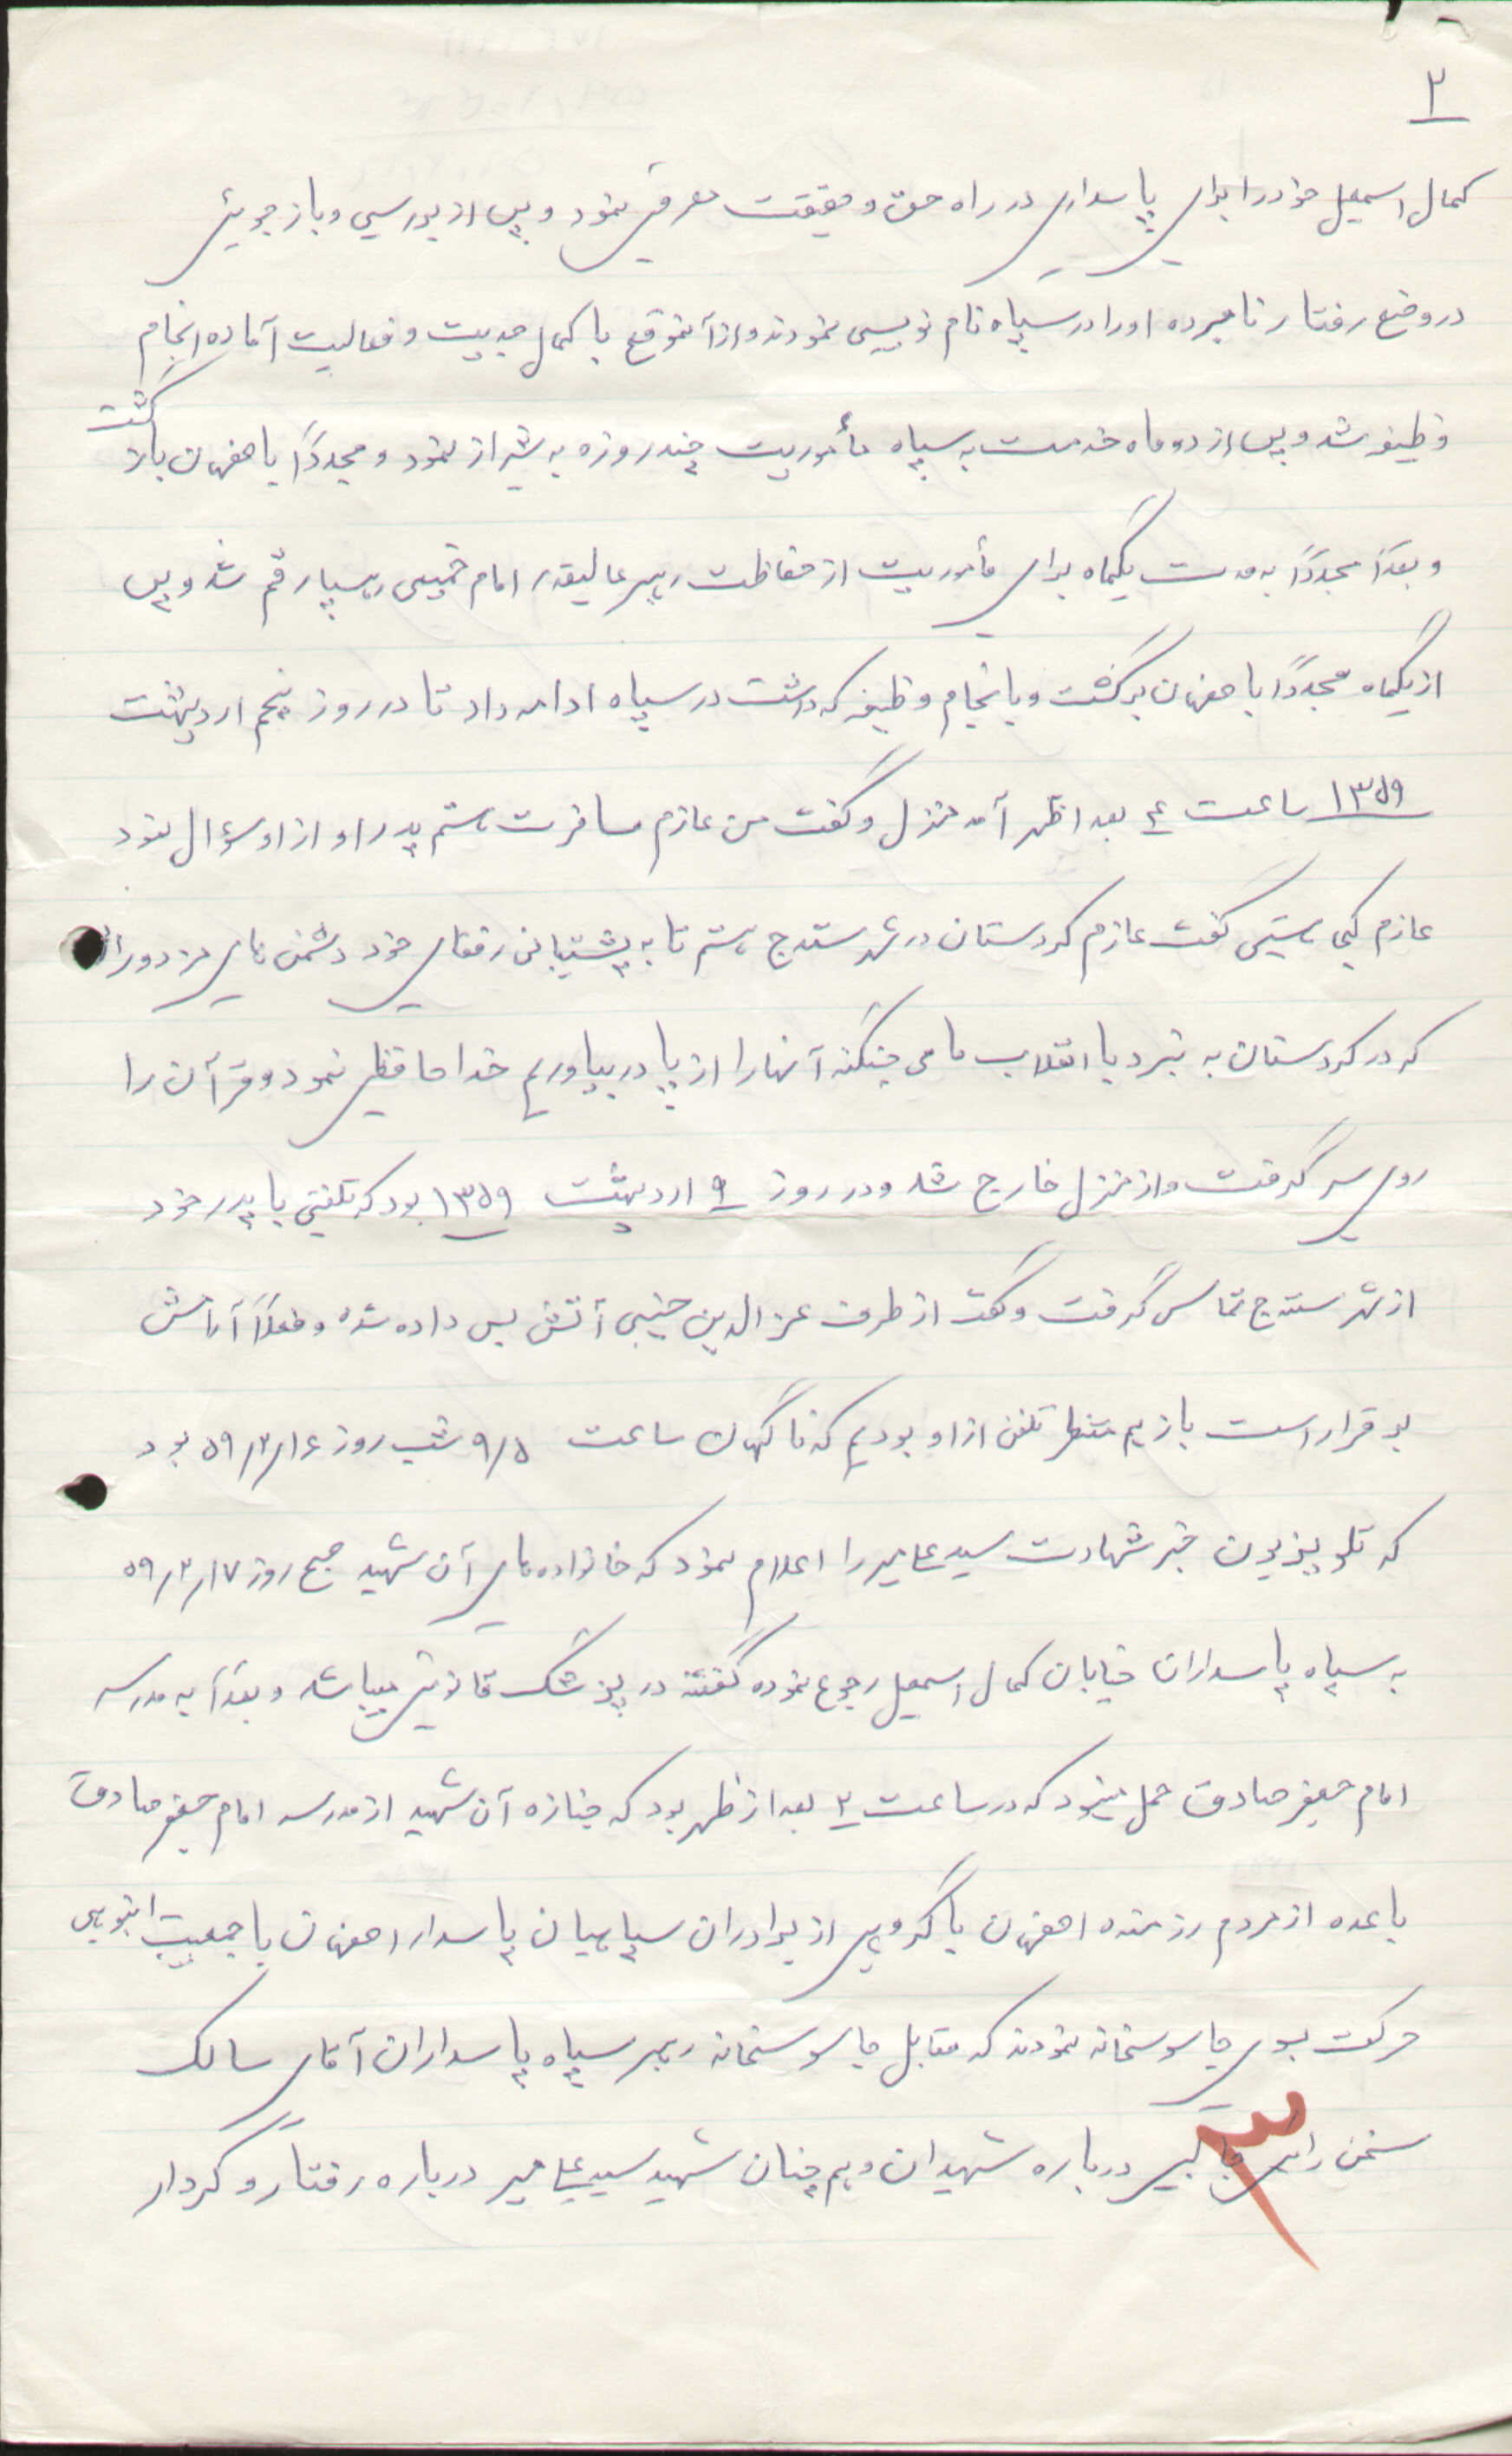 ۲
کمال اسمعیل خود را برای پاسداری در راه حق و حقیقت معرفی نمود و پس از بررسی و بازجوئی
در وضع رفتار نامبرده او را در سپاه نام نویسی نمودند و از آنموقع با کمال جدیت و فعالیت آماده انجام
وظیفه شد و پس از دو ماه خدمت به سپاه مأموریت چند روزه به شیراز نمود و مجدداً باصفهان باز گشت
و بعداً مجدداً به مدت یکماه برای مأموریت از حفاظت رهبر عالیقدر امام خمینی رهسپار قم شد و پس
از یکماه مجدداً باصفهان برگشت و بانجام وظیفه که داشت در سپاه ادامه داد تا در روز پنجم اردیبهشت
۱۳۵۹ ساعت ۴ بعد اظهر آمد منزل و گفت من عازم مسافرت هستم پدر او از او سؤال نمود
عازم کجا هستی گفت عازم کردستان در شهر سنندج هستم تا به پشتیبانی رفقای خود دشمن های مزدور را
که در کردستان به نبرد با انقلاب ما می جنگند آنها را از پا در بیاوریم خداحافظی نمود و قرآن را
روی سر گرفت و از منزل خارج شد و در روز ۹ اردیبهشت ۱۳۵۹ بود که تلفنی با پدر خود
از شهر سنندج تماس گرفت و گفت از طرف عزالدین حسینی آتش بس داده شده و فعلاً آرامش
بر قرار است باز هم منتظر تلفن از او بودیم که ناگهان ساعت ۹/۵ شب روز ۵۹/۲/۱۶ بود
که تلویزیون خبر شهادت سید علی میر را اعلام نمود که خانواده های آن شهید صبح روز ۵۹/۲/۱۷
به سپاه پاسداران خیابان کمال اسمعیل رجوع نموده گفتند در پزشک قانونی میباشد و بعداً به مدرسه
امام جعفر صادق حمل میشود که در ساعت ۲ بعد از ظهر بود که جنازه آن شهید از مدرسه امام جعفر صادق
با عده از مردم رزمنده اصفهان با گروهی از برادران سپاهیان پاسدار اصفهان با جمعیت انبوهی
حرکت بسوی جاسوسخانه نمودند که مقابل جاسوسخانه رهبر سپاه پاسداران آقای سالک
سخن رانی جالبی درباره شهیدان و هم چنان شهید سید علی میر درباره رفتار و کردار
۳